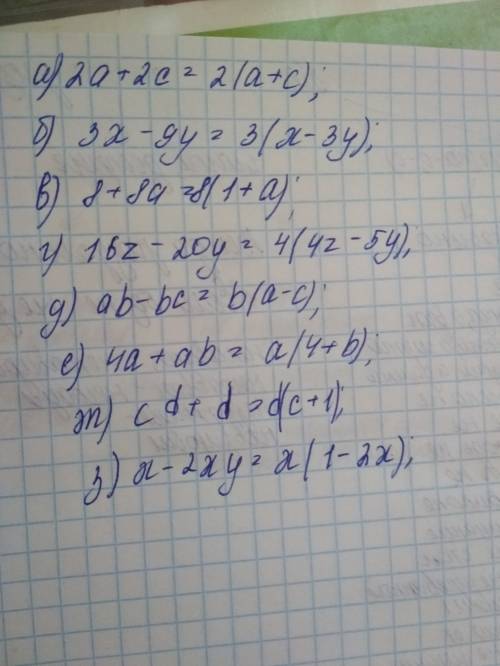 а) 2a+2c = 2(a+c);
б) 3x-9y = 3(x-3y);
в) 8+8a =8(1+a);
г) 16z-20y = 4(4z-5y);
д) ab-bc = b(a-c);
е) 4a+ab = a(4+b);
ж) cd+d =d(c+1);
з) x-2xy = x(1-2x);